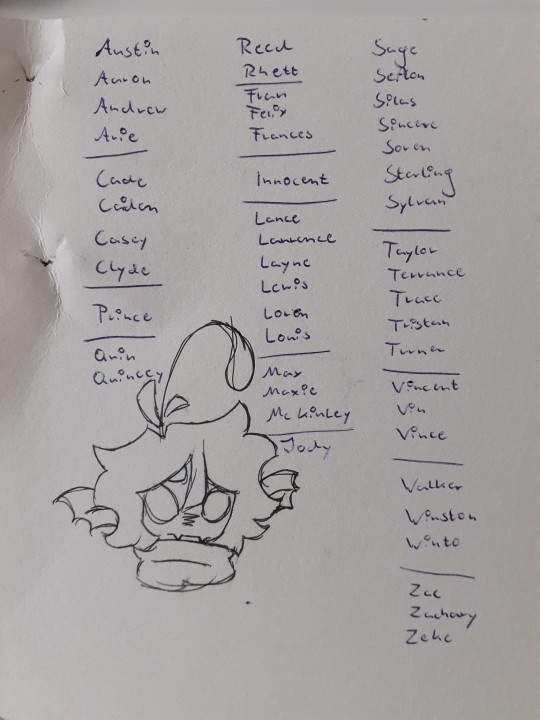 Austin
Aaron
Andrew
Arie
Cade
Caiden
Casey
Clyde
Prince
Quin
Quincey
Reed
Rhett
Fran
Felix
Frances
Innocent
Lance
Lawrence
Layne
Lewis
Loren
Louis
Max
Maxie
McKinley
Jody
Sage
Silas
Sincere
Soren
Sterling
Sylvan
Taylor
Terrance
Trace
Tristan
Turner
Vincent
Vin
Vince
Walker
Winston
Zac
Zachary
Zeke